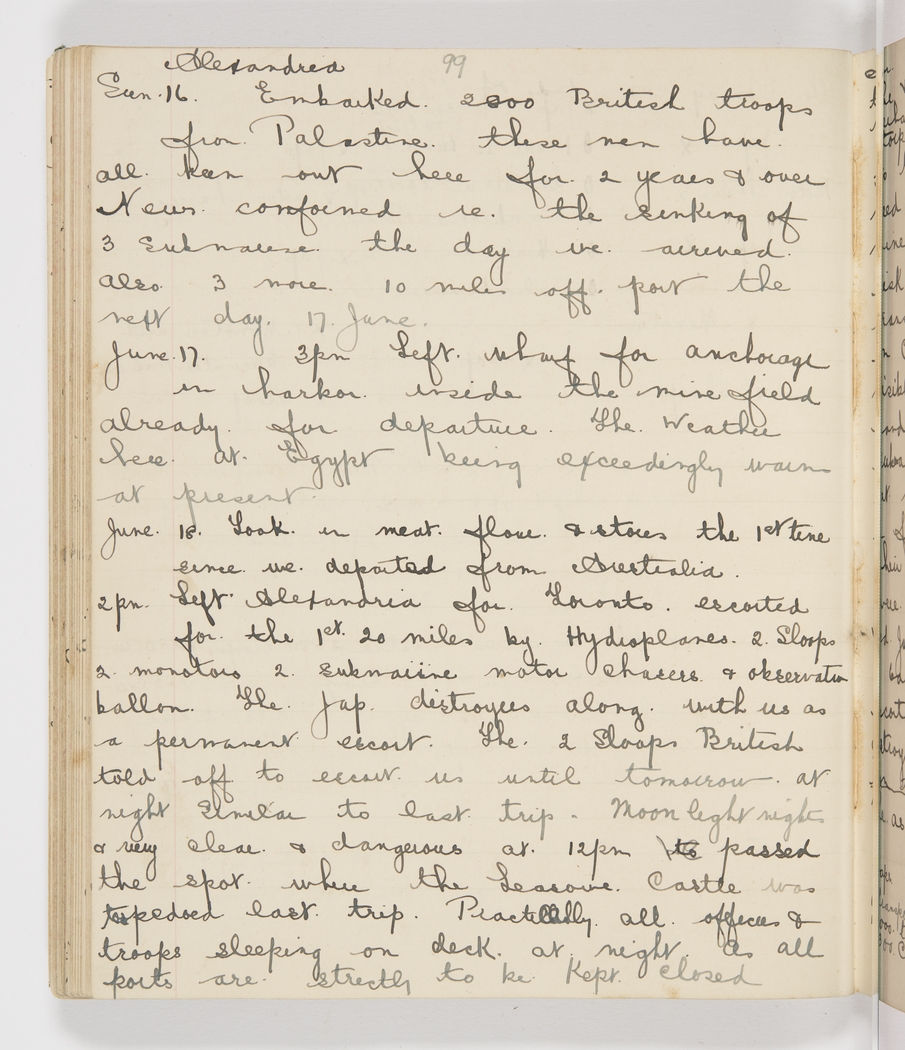 Alexandria 99
Sun. 16. Embarked. 2000 British troops
from. Palastine. these men have.
all. been out here for. 2 years & over
News. confirmed re. the sinking of
3 Submarine. the day we. arrived.
also. 3 more. 10 miles off. port the
next day. 17. June.
June. 17. 3pm Left. wharf for anchorage
in harbor. inside the mine field
already. for departure. The. Weather
here. at. Egypt being exceedingly warm
at present.
June. 18. Took. in meat. flour. & stores the 1st time
since. we. departed from. Australia.
2pm. Left. Alexandria for. Toronto. escorted
for. the 1st. 20 miles by. Hydroplanes. 2. Sloops
2. monotors 2. Submariine motor chasers. & observation
ballon. The. Jap. destroyers along. with us as
a permanent. escort. The. 2 Sloops British
told off to escort. us until tomorrow. at
night Similar to last. trip. Moon light nights
& very clear. & dangerous at. 12pm passed
the spot. where the Leasowe. Castle was
torpedoed last. trip. Practically. all. officers &
troops sleeping on deck. at. night. as all
ports are. strectly to be. Kept. closed